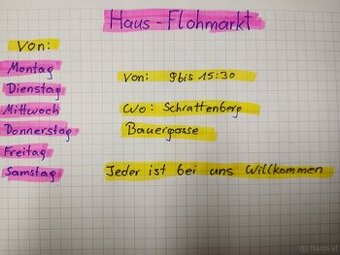 Haus-Flohmarkt
Von:
Montag
Dienstag
Mittwoch
Donnerstag
Freitag
Samstag
Von: 9 bis 15:30
Wo: Schrattenberg
Bauergasse
Jeder ist bei uns Willkommen